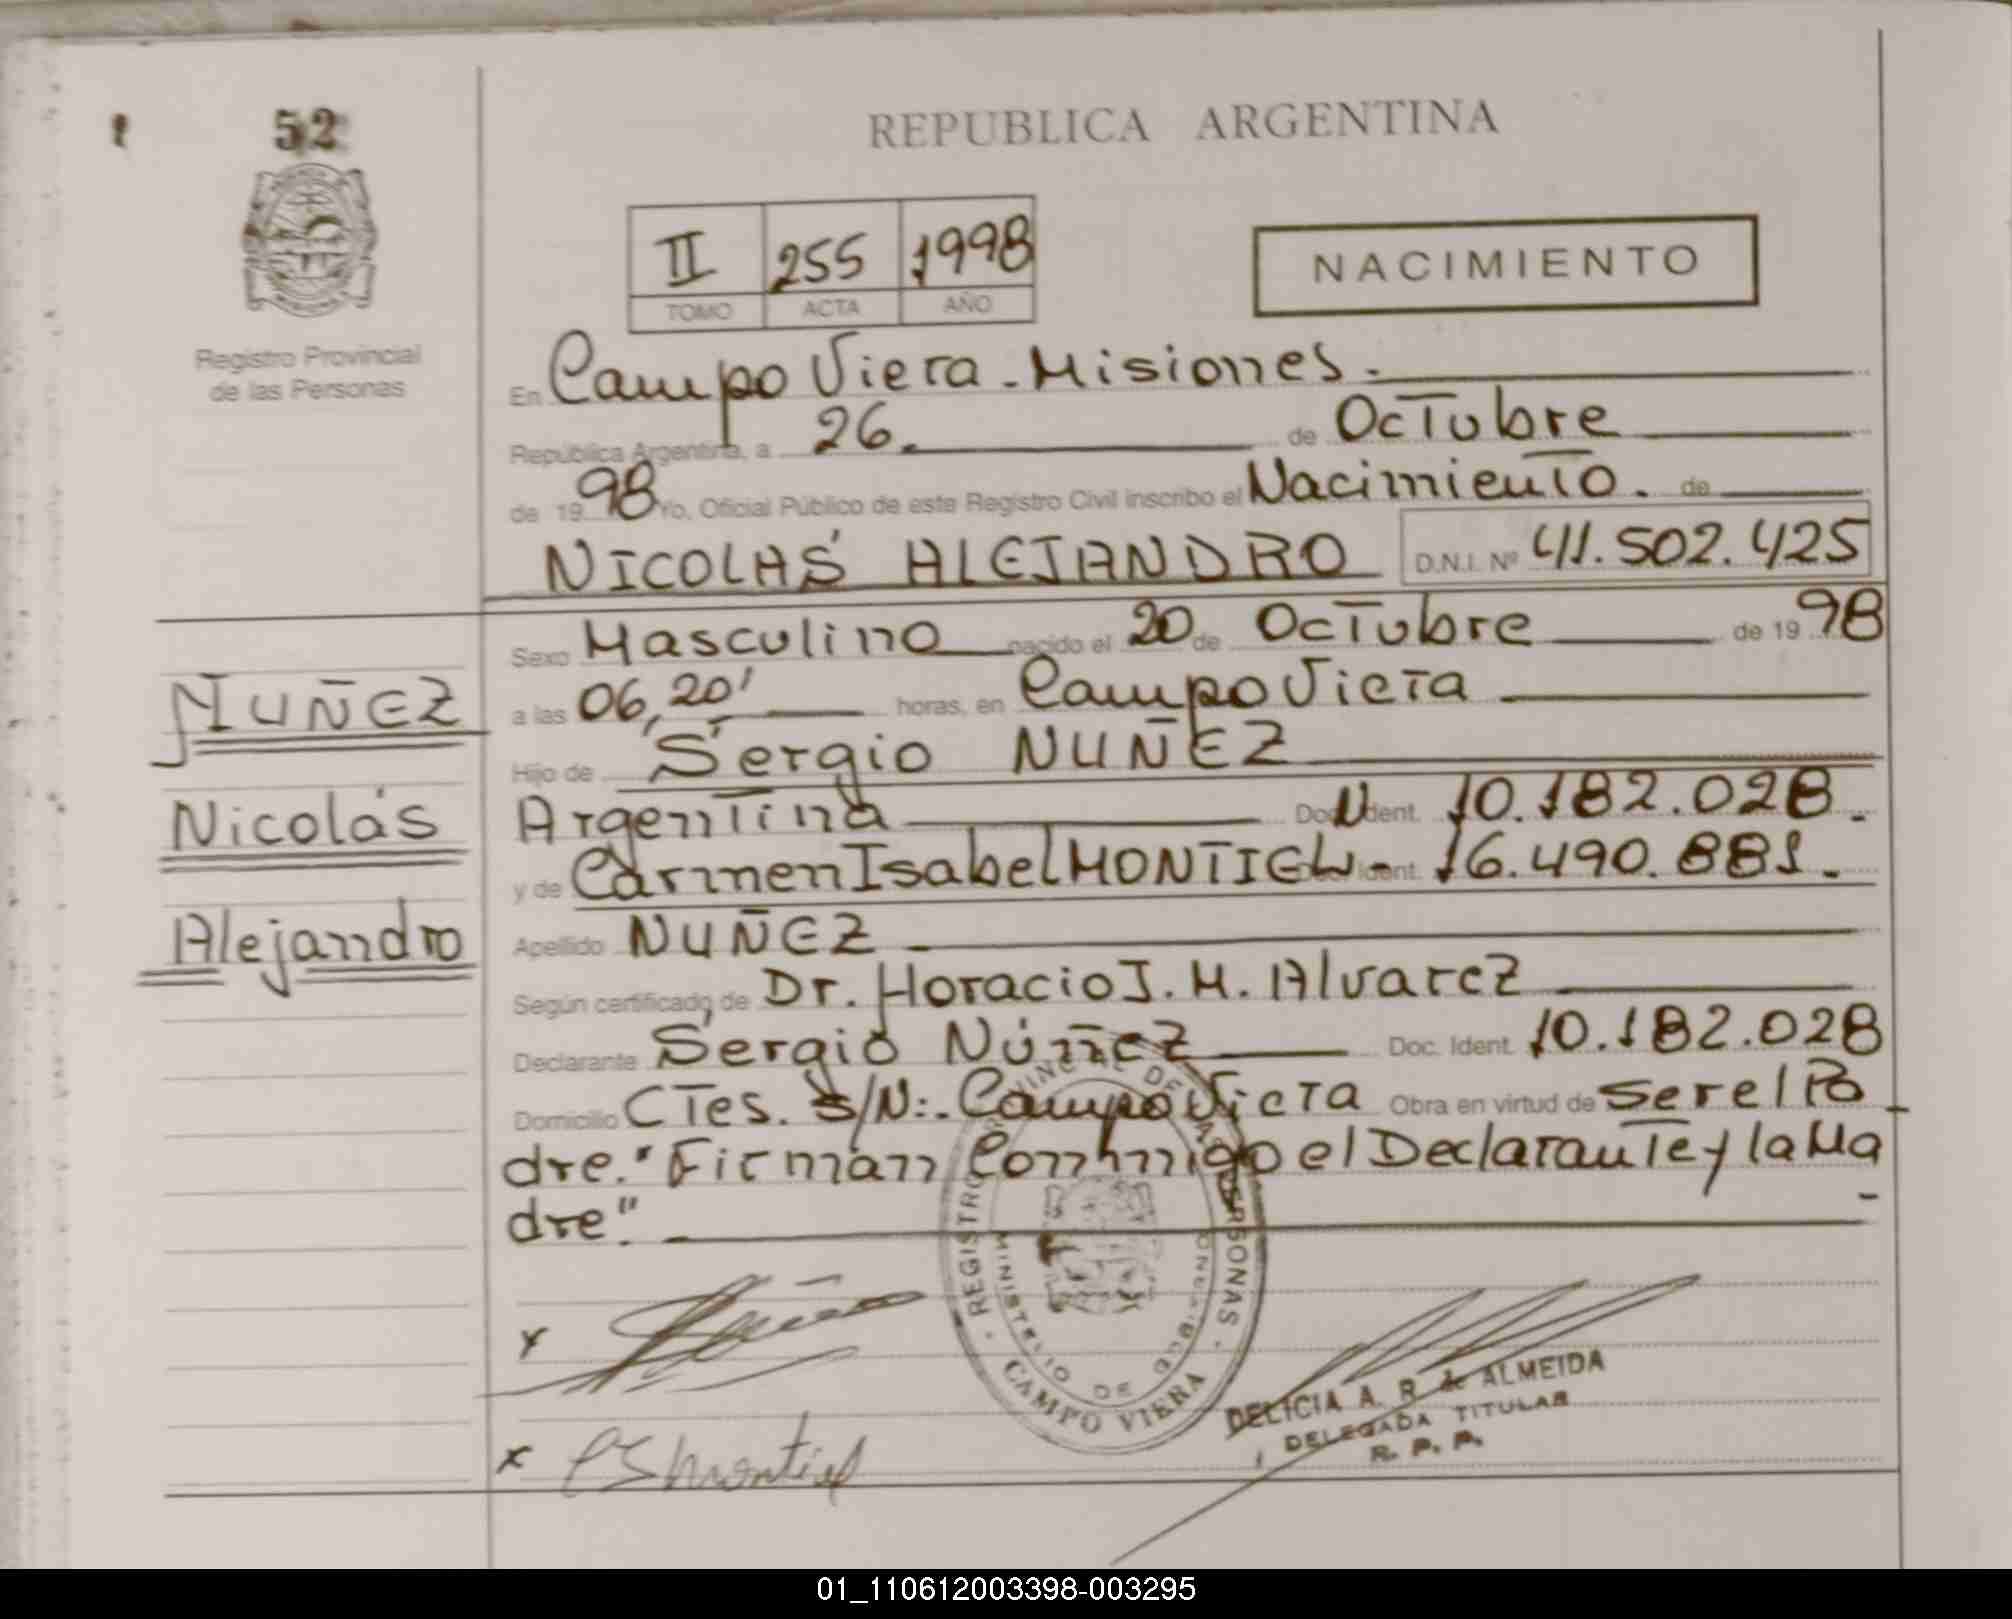 52
REPUBLICA ARGENTINA
II 255 1998
TOMO ACTA AÑO
NACIMIENTO
Registro Provincial
de las Personas
En Campo Viera - Misiones.
República Argentina, a 26. de Octubre
de 1998 Yo, Oficial Público de este Registro Civil inscribo el Nacimiento. de
NICOLÁS ALEJANDRO D.N.I. Nº 41.502.425
Sexo Masculino nacido el 20 de Octubre de 1998
NUÑEZ
a las 06,20' horas, en Campo Viera
Hijo de Sergio NUÑEZ
Nicolás
Argentina Doc. Ident. 10.182.028.
y de Carmen Isabel MONTIEL - Ident. 16.490.881.
Alejandro
Apellido NUÑEZ -
Según certificado de Dr. Horacio J. M. Alvarez
Declarante Sergio Núñez Doc. Ident. 10.182.028
Domicilio CTes. S/N:. Campo Viera Obra en virtud de ser el Pa
dre." Firman Conmigo el Declarante y la Ma
dre".
REGISTRO PROVINCIAL DE LAS PERSONAS
MINISTERIO DE GOB
CAMPO VIERA
x
x CSMontiel
DELICIA A. R. de ALMEIDA
DELEGADA TITULAR
R. P. P.
01_110612003398-003295